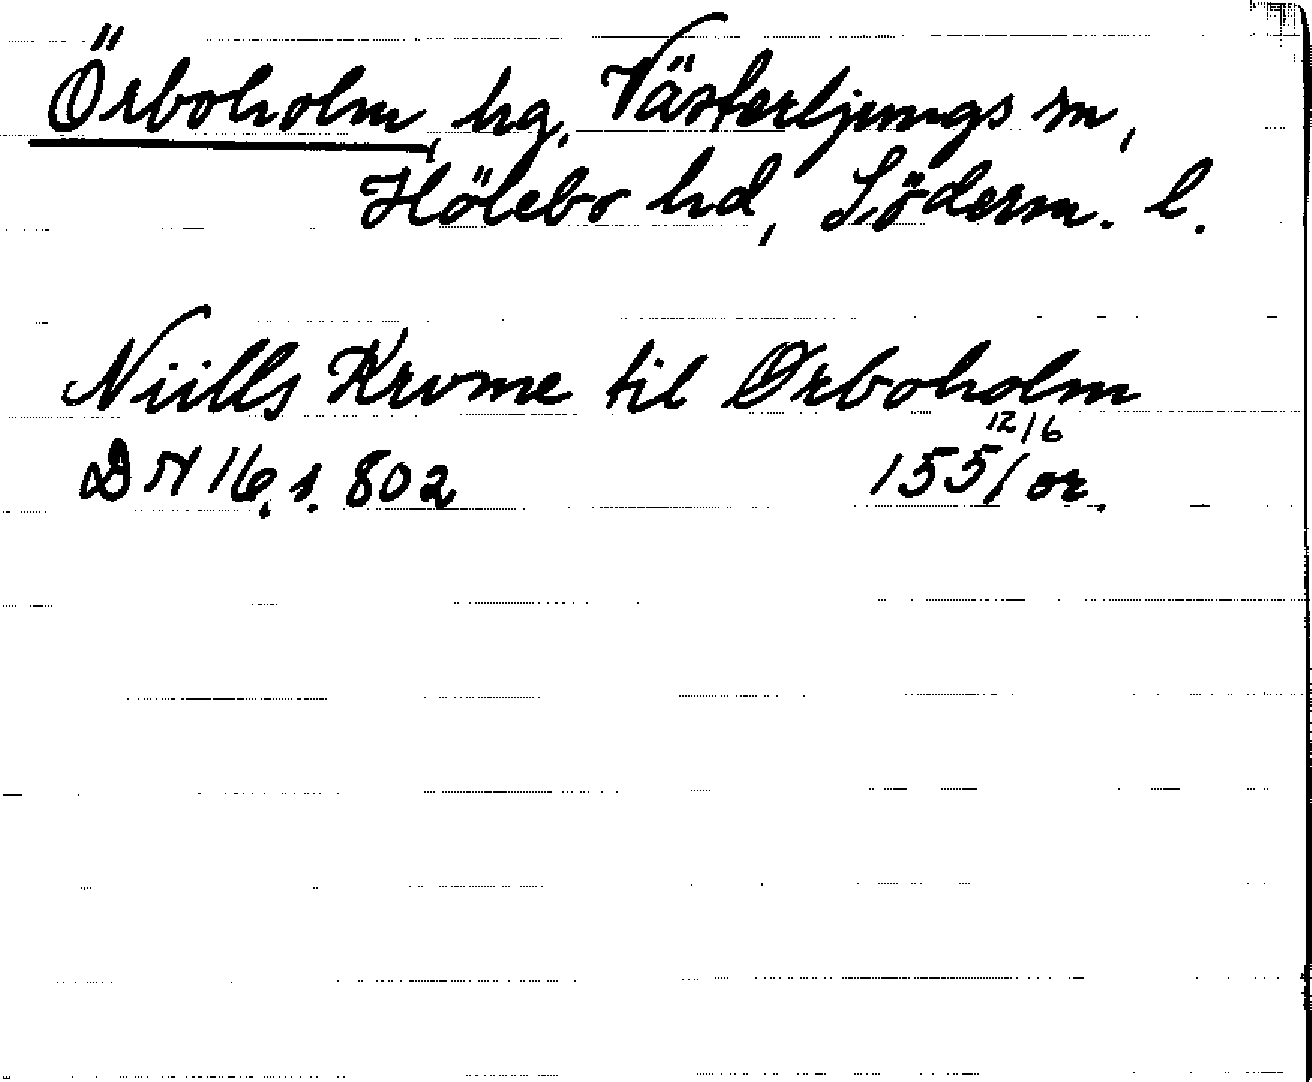 Örboholm, hg. Västerljungs sn,
Hölebo hd, Söderm. l.
Niills Krvme til Ørboholm
DN 16, s. 802 12/6 1551 or.